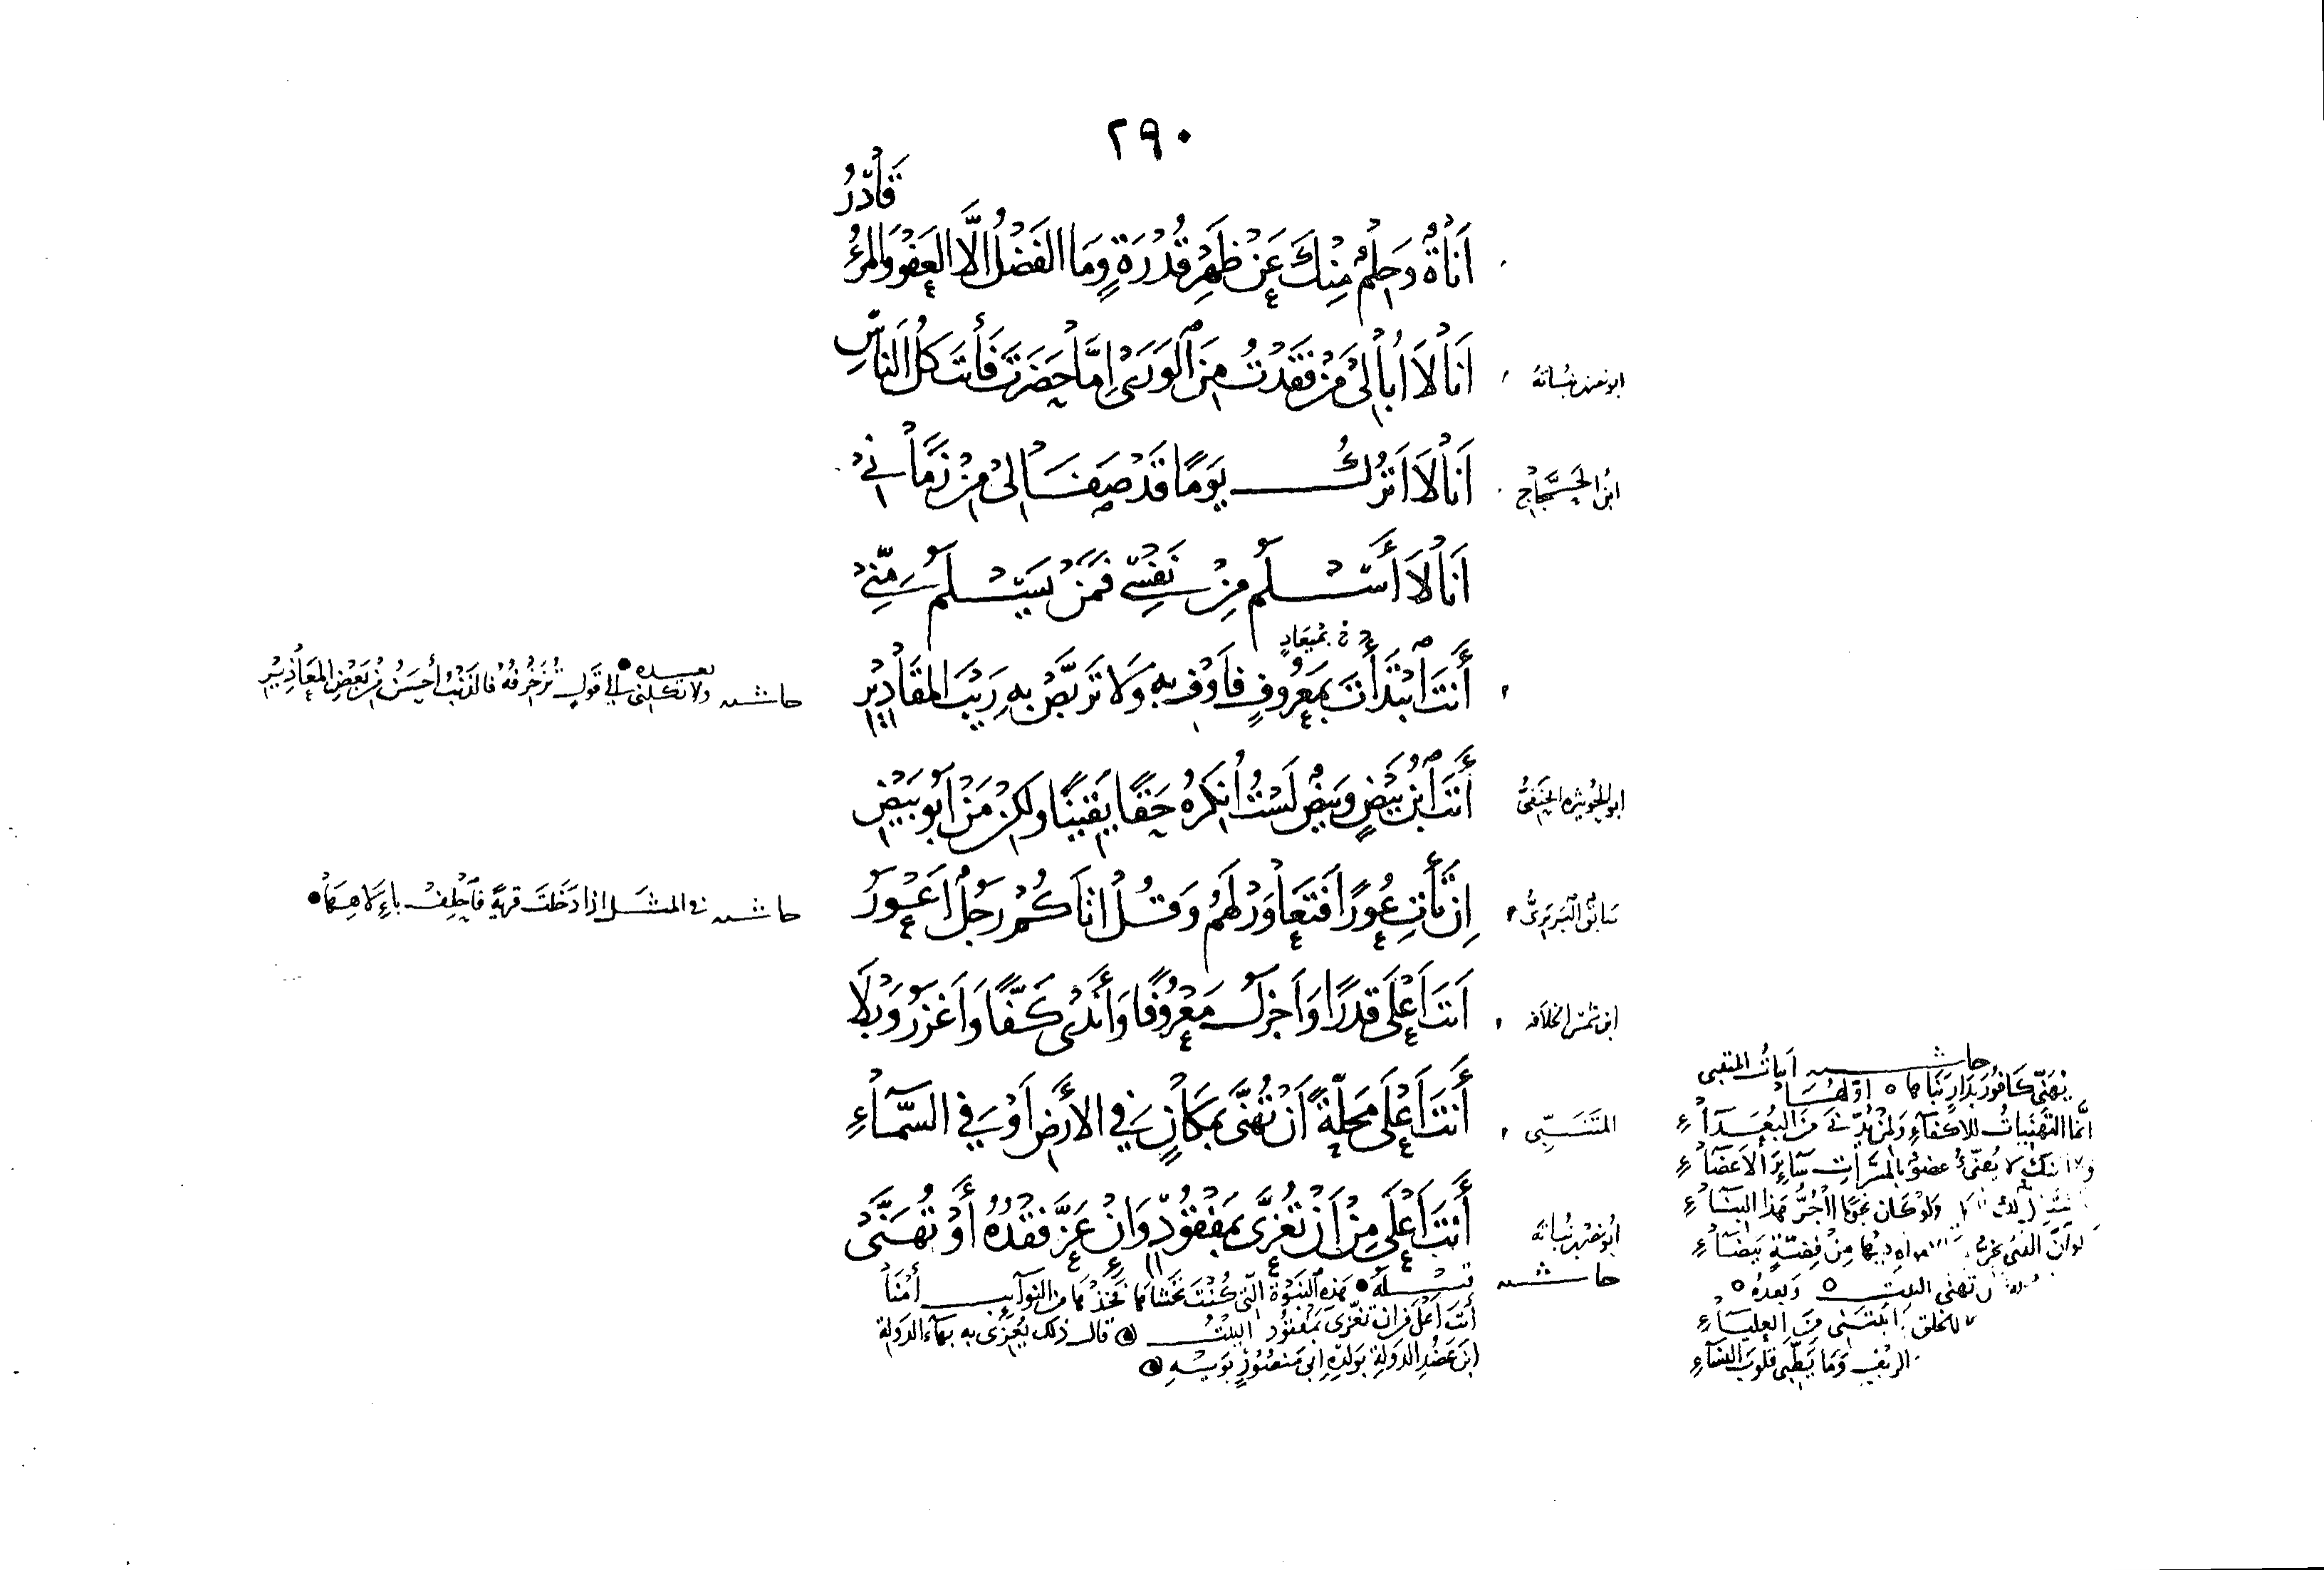 ٢٩٠
قَادِرُ
أَنَاةٌ وَحِلْمٌ مِنْكَ عَنْ ظَهْرِ قُدْرَةٍ وَمَا الفَضْلُ إلَّا العَفْوُ وَالمَرْءُ
ابو نصر بن نباته أَنَا لَا أُبَالِي مَنْ فَقَدْتُ مِنَ الوَرَى إِمَّا حَضَرَتَ فَأَنتَ كُلُّ النَّاسِ
ابن الحَجَّاج أَنَا لَا اَترُكُ يَومًا قَدْ صَفَا لِي مِنْ زَمَانِي
أَنَا لَا أَسْلَمُ مِنْ نَفْسِي فَمَنْ يَسْلَمُ مِنِّي
خ بمِيعَادٍ
أَنتَ ابْتَدَأتَ بمَعرُوفٍ فَأَوْفِ بِهِ وَلَا تَربَّصْ بِهِ رَيْبَ المَقَادِيرِ
حاشية بعده ● وَلَا تَكِلْنِي إِلَى قَولٍ تُزَخْرِفُهُ فَالذَنْبُ أَحسَنُ مِنْ بَعْضِ المَعَاذِيرِ
ابو الجويرية الحَنَفيُّ أَنتَ ابْنُ بَيضٍ وَبَيضٌ لَسْتُ أُنْكِرُهُ حَقًا يَقِينًا وَلكِنْ مَنْ أَبُو بَيْضِ
سَابِقُ البَربَرِيُّ إِنْ تَأتِ عُورًا فَتَعَاوَرْ لَهُم وَقُلْ أَتَاكُمْ رَجُلٌ أَعْوَرُ
حاشية في المثل اذا دَخَلتَ قريةً فَاحْلِفْ بِإلَاهِهَا ●
ابن شمس الخلافه أَنتَ أَعْلَى قَدرًا وَأَجزَلُ مَعْرُوفًا وَأَنْدَى كَفًّا وَأَغْزَرُ وَبْلَا
المُتَنَبِّي أَنتَ أَعْلَى مَحَلَّةً أَنْ تُهَنَّى بمَكَانٍ فِي الأَرضِ أَوْ فِي السَّمَاءِ
ابو نصر بن نباته أَنتَ أَعْلَى مِنْ أَنْ تُعَزَّى بمَفقُودٍ وَإِنْ عَزَّ فَقْدُهُ أَوْ تُهَنَّى
حاشية قبله ● هَذِهِ النَبْوَةُ الَّتِي كُنْتَ تَخشَاهَا فَخُذْهَا مِن النوَآئِبِ أَمْنَا
أَنتَ أَعْلَى مِن ان تُعَزَّى بمَفقُودٍ البَيْتُ ۞ قال ذلك يُعَزِّى به بَهَاء الدولةِ
ابنَ عَضُدِ الدولةِ بوَلدِهِ ابى مَنصُورٍ بُوَيْهِ ۞
حاشية أَبيَاتُ المتنبى
يُهَنّى كَافُورَ بدَارٍ بَنَاهَا ٥ اوّلهَا
إِنَّمَا التَّهْنِيَاتُ للاكفَاءِ وَلِمَنْ يَدَّنى مَنَ البُعَدَآءِ
وانا منك لا يُهَنّى عضوٌ بالمَسَرَّاتِ سَآئِرَ الأَعضَآءِ
وَلَوْ كَانَ نجُومًا آجُرُّ هَذَا البِنَاءِ
وَلَوَ انَّ الذي يَخِرُّ من الامواهِ فِيهَا مِنْ فِضَّةٍ بَيضَآءِ
ان تهنى البيت ٥ وَبَعدَهُ ٥